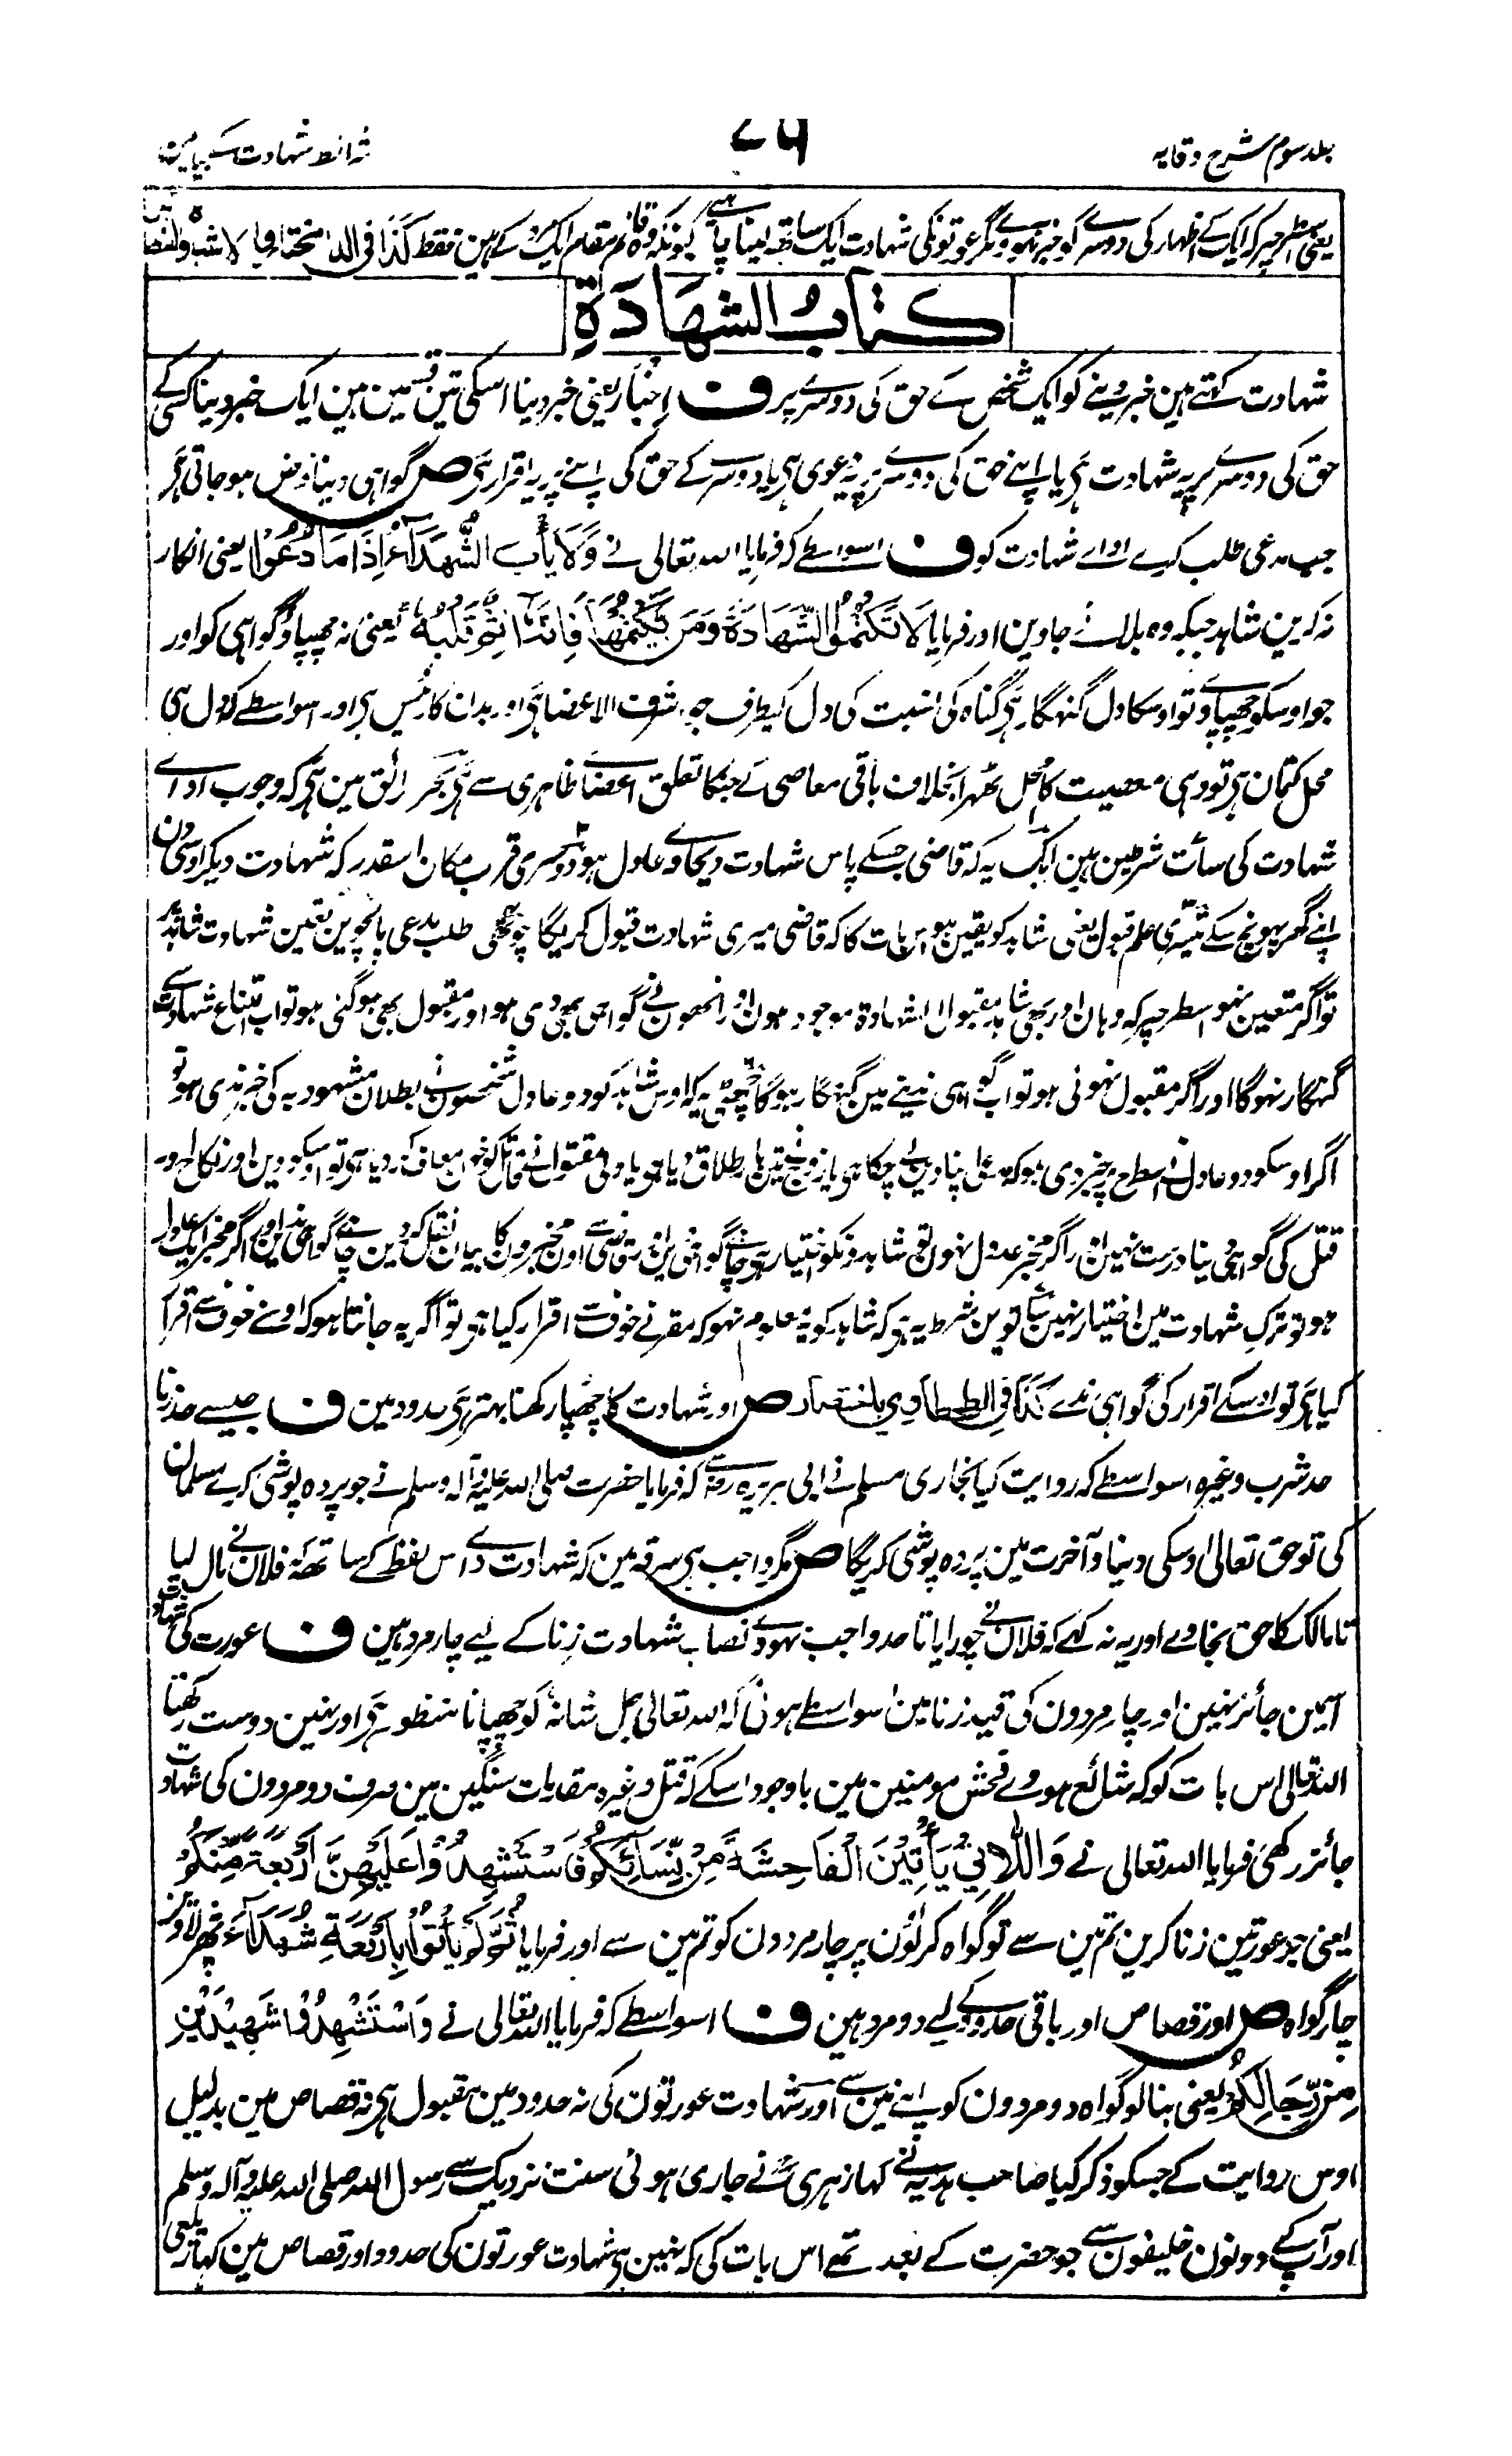 جلد سوم شرح وقایہ
۷۶
شرائط شہادت کے بیان مین
یعنی اسطرحپر کہ ایک کے اظہار کی دوسرے کو خبر نہووے مگر عورتونکی شہادت ایک ساتھ لینا چاہیے کیونکہ وہ قائم مقام ایک مرد کے ہین فقط کذا فی الدر المختار والاشباہ
کتاب الشہادۃ
شہادت کہتے ہین خبر دینے کو ایک شخص کے حق کی دوسرے پر ف اخبار یعنی خبر دینا اسکی تین قسمین ہین ایک خبر دینا کسی کے
حق کی دوسرے پر یہ شہادت ہی یا اپنے حق کی دوسرے پر یہ دعوی ہی یا دوسرے کے حق کی اپنے پر یہ اقرار ہی ص گواہی دینا فرض ہو جاتی ہی
جب مدعی طلب کرے اداے شہادت کو ف اسواسطے کہ فرمایا اللہ تعالی نے وَلَا يَأْبَ الشُّهَدَآءُ إِذَا مَا دُعُوْا یعنی انکار
نہ کرین شاہد جبکہ وہ بلائے جاوین اور فرمایا لَا تَكْتُمُوا الشَّهَادَةَ وَمَن يَّكْتُمْهَا فَإِنَّهٗ اٰثِمٌ قَلْبُهٗ یعنی نہ چھپاؤ گواہی کو اور
جو اوسکو چھپاوے تو اوسکا دل گنہگار ہی گناہ کی نسبت کی دل کیطرف جو اشرف الاعضا ہی اور بدن کا رئیس ہی اور اسواسطے کہ دل ہی
محل کتمان ہی تو وہی معصیت کا محل ٹھہرا بخلاف باقی معاصی کے جنکا تعلق اعضاے ظاہری سے ہی بحر رائق مین ہی کہ وجوب اداے
شہادت کی سات شرطین ہین ایک یہ کہ قاضی جسکے پاس شہادت دیجاوے عادل ہو دوسری قرب مکان اسقدر کہ شہادت دیکر اوسی دن
اپنے گھر پہونچ سکے تیسری علم قبول یعنی شاہد کو یقین ہو اس بات کا کہ قاضی میری شہادت قبول کریگا چوتھی طلب مدعی پانچوین تعین شہادت شاہد پر
تو اگر متعین نہو اسطرحپر کہ وہان اور بھی شاہد مقبول الشہادۃ موجود ہون اور انھون نے گواہی بھی دی ہو اور مقبول بھی ہوگئی ہو تو اب امتناع شہادت سے
گنہگار نہوگا اور اگر مقبول نہوئی ہو تو اب گواہی ندینے مین گنہگار ہوگا چھٹی یہ کہ اوس شاہد کو دو عادل شخصون نے بطلان مشہود بہ کی خبر ندی ہو تو
اگر اوسکو دو عادل نے اسطرح پر خبر دی ہو کہ مدعی اپنا دین لے چکا ہی یا زوج نے تین بار طلاق دیا ہی یا ولی مقتول نے قاتل کو خون معاف کر دیا ہی تو اوسکو دین اور نکاح اور
قتل کی گواہی دینا درست نہین اور اگر مخبر عدل نہون تو شاہدونکو اختیار ہی چاہے گواہی دین اور قاضی سے اون مخبرون کا بیان نقل کردین چاہے گواہی ندین اور اگر مخبر ایک عادل
ہو تو ترک شہادت مین اختیار نہین ساتوین شرط یہ ہی کہ شاہد کو یہ معلوم نہو کہ مقر نے خوف سے اقرار کیا ہی تو اگر یہ جانتا ہو کہ اوسنے خوف سے اقرار
کیا ہی تو اوسکے اقرار کی گواہی ندے کذا فی الطحطاوی باختصار ص اور شہادت کا چھپا رکھنا بہتر ہی حدود مین ف جیسے حد زنا
حد شرب وغیرہ اسواسطے کہ روایت کیا بخاری مسلم نے ابی ہریرہ رضہ سے کہ فرمایا حضرت صلی اللہ علیہ وآلہ وسلم نے جو پردہ پوشی کرے مسلمان
کی تو حق تعالی اوسکی دنیا و آخرت مین پردہ پوشی کریگا ص مگر واجب ہی سرقہ مین کہ شہادت دے اس لفظ کے ساتھ کہ فلان نے مال لیا
تا مالک کا حق بچاوے اور یہ نہ کہے کہ فلان نے چورایا تا حد واجب نہووے نصاب شہادت زنا کے لیے چار مرد ہین ف عورت کی شہادت
اسمین جائز نہین اور چار مردون کی قید زنا مین اسواسطے ہوئی کہ اللہ تعالی جل شانہ کو چھپانا منظور ہی اور نہین دوست رکھتا
اللہ تعالی اس بات کو کہ شائع ہووے فحش مومنین مین باوجود اسکے کہ قتل وغیرہ مقدمات سنگین مین صرف دو مردون کی شہادت
جائز رکھی فرمایا اللہ تعالی نے وَاللَّاتِيْ يَأْتِيْنَ الْفَاحِشَةَ مِنْ نِّسَائِكُمْ فَاسْتَشْهِدُوْا عَلَيْهِنَّ أَرْبَعَةً مِّنْكُمْ
یعنی جو عورتین زنا کرین تم مین سے تو گواہ کر لو اون پر چار مردون کو تم مین سے اور فرمایا ثُمَّ لَمْ يَأْتُوْا بِأَرْبَعَةِ شُهَدَآءَ پھر نہ لاوین
چار گواہ ص اور قصاص اور باقی حدود کے لیے دو مرد ہین ف اسواسطے کہ فرمایا اللہ تعالی نے وَاسْتَشْهِدُوْا شَهِيْدَيْنِ
مِنْ رِّجَالِكُمْ یعنی بنا لو گواہ دو مردون کو اپنے مین سے اور شہادت عورتون کی نہ حدود مین مقبول ہی نہ قصاص مین بدلیل
اوس روایت کے جسکو ذکر کیا صاحب ہدایہ نے کہا زہری نے جاری ہوئی سنت نزدیک سے رسول اللہ صلی اللہ علیہ وآلہ وسلم
اور آپ کے دونون خلیفون سے جو حضرت کے بعد تھے اس بات کی کہ نہین ہی شہادت عورتون کی حدود اور قصاص مین کہا زیلعی